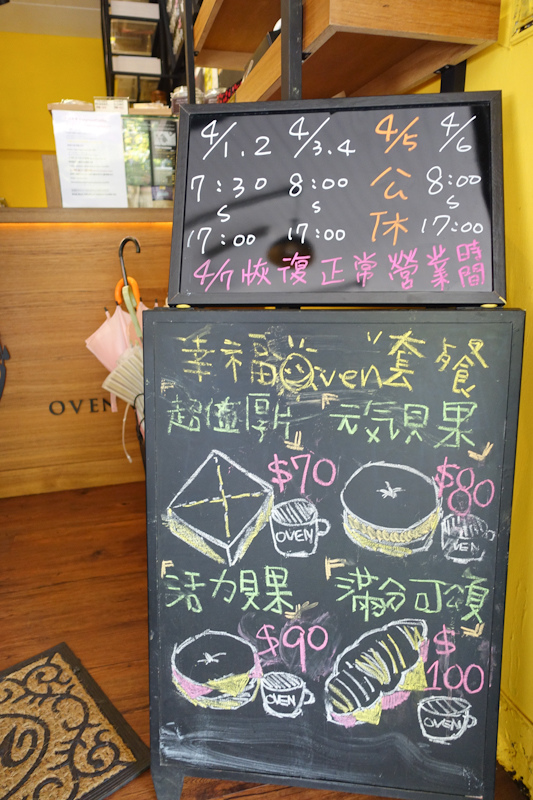 4/1.2 4/3.4 4/5 4/6
7:30 8:00 公 8:00
S S 休 S
17:00 17:00 17:00
4/7恢復正常營業時間
幸福Oven套餐
「超值厚片」「元気貝果」
$70 $80
OVEN OVEN
「活力貝果」「滿分可頌」
$90 $100
OVEN OVEN
OVEN